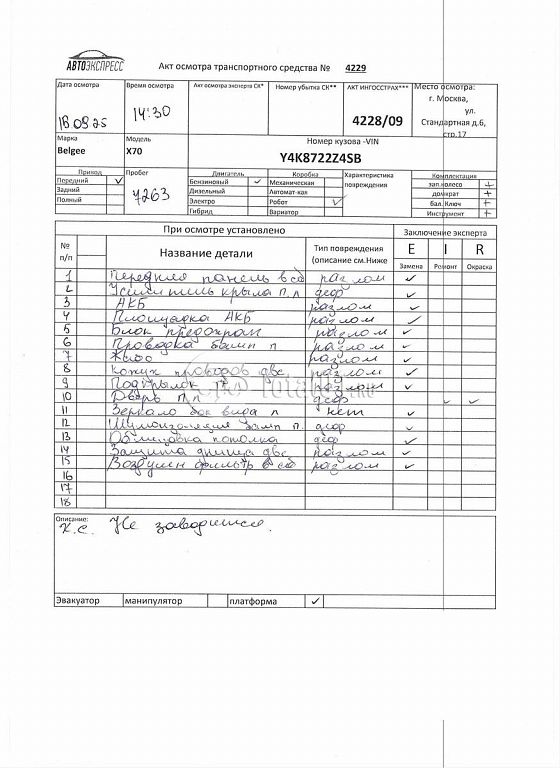 АВТОЭКСПРЕСС
Акт осмотра транспортного средства № 4229
Дата осмотра Время осмотра Акт осмотра эксперта СК* Номер убытка СК** АКТ ИНГОССТРАХ*** Место осмотра:
18 09 25 14:30 4228/09 г. Москва,
ул.
Стандартная д.6,
стр.17
Марка Модель Номер кузова -VIN
Belgee X70 Y4K8722Z4SB
Привод Пробег Двигатель Коробка Характеристика повреждения Комплектация
Передний ✓ 7263 Бензиновый ✓ Механическая зап.колесо +
Задний Дизельный Автомат-кая домкрат +
Полный Электро Робот ✓ бал. Ключ +
Гибрид Вариатор Инструмент +
При осмотре установлено Заключение эксперта
№ п/п Название детали Тип повреждения (описание см.Ниже E I R
Замена Ремонт Окраска
1 Передняя панель в сб разлом ✓
2 Усилитель крыла п.л деф ✓
3 АКБ разлом ✓
4 Площадка АКБ разлом ✓
5 Блок предохран разлом ✓
6 Проводка бамп п разлом ✓
7 разлом ✓
8 Кожух проводов двс разлом ✓
9 Подкрылок разлом ✓
10 Дверь п л деф ✓ ✓
11 Зеркало бок вида л нет ✓
12 Шумоизоляция бамп п. деф ✓
13 Облицовка потолка деф ✓
14 Защита днища двс разлом ✓
15 Воздушн фильтр в сб разлом ✓
16
17
18
Описание:
Х.С. Не заводится.
Эвакуатор манипулятор платформа ✓